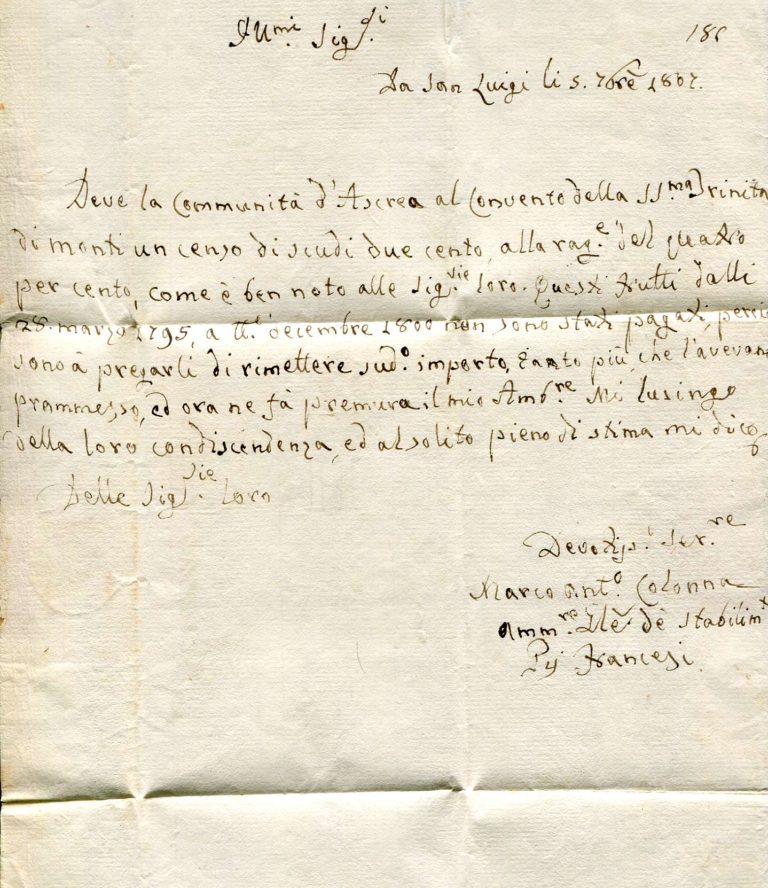 Ill.mi Sig.ri
Da San Luigi li 5. 7bre 1807.
Deve la Communità d'Ascrea al Convento della SS.ma Trinità
di monti un censo di scudi due cento, alla rag.e del quatro
per cento, come è ben noto alle Sig.rie loro. Questi frutti dalli
28. marzo 1795, a tt.o decembre 1800 non sono stati pagati, perciò
sono à pregarli di rimettere sud.o importo, tanto più, che l'avevano
prammesso, ed ora ne fà premura il mio Amb.re Mi lusingo
della loro condiscendenza, ed al solito pieno di stima mi dico
Delle Sig.rie loro
Devotiss.o Ser.re
Marco Ant.o Colonna
Amm.re Gle de Stabilim.ti
Pij Francesi.